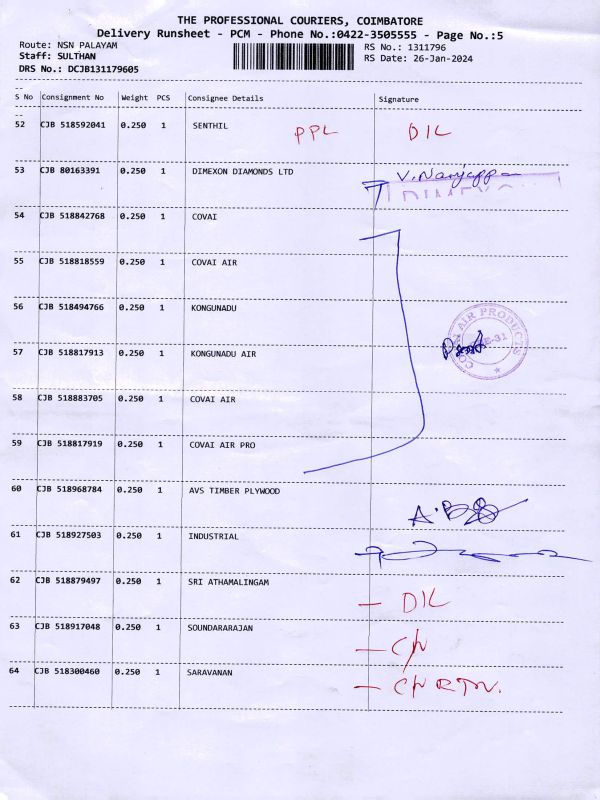 THE PROFESSIONAL COURIERS, COIMBATORE
Delivery Runsheet - PCM - Phone No.:0422-3505555 - Page No.:5
Route: NSN PALAYAM RS No.: 1311796
Staff: SULTHAN RS Date: 26-Jan-2024
DRS No.: DCJB131179605
S No Consignment No Weight PCS Consignee Details Signature
52 CJB 518592041 0.250 1 SENTHIL PPL D/L
53 CJB 80163391 0.250 1 DIMEXON DIAMONDS LTD V.Nanjappa
54 CJB 518842768 0.250 1 COVAI
55 CJB 518818559 0.250 1 COVAI AIR
56 CJB 518494766 0.250 1 KONGUNADU
57 CJB 518817913 0.250 1 KONGUNADU AIR
AIR PRODUCTS
58 CJB 518883705 0.250 1 COVAI AIR
59 CJB 518817919 0.250 1 COVAI AIR PRO
60 CJB 518968784 0.250 1 AVS TIMBER PLYWOOD
61 CJB 518927503 0.250 1 INDUSTRIAL
62 CJB 518879497 0.250 1 SRI ATHAMALINGAM - D/L
63 CJB 518917048 0.250 1 SOUNDARARAJAN - C/N
64 CJB 518300460 0.250 1 SARAVANAN - C/N RTN.